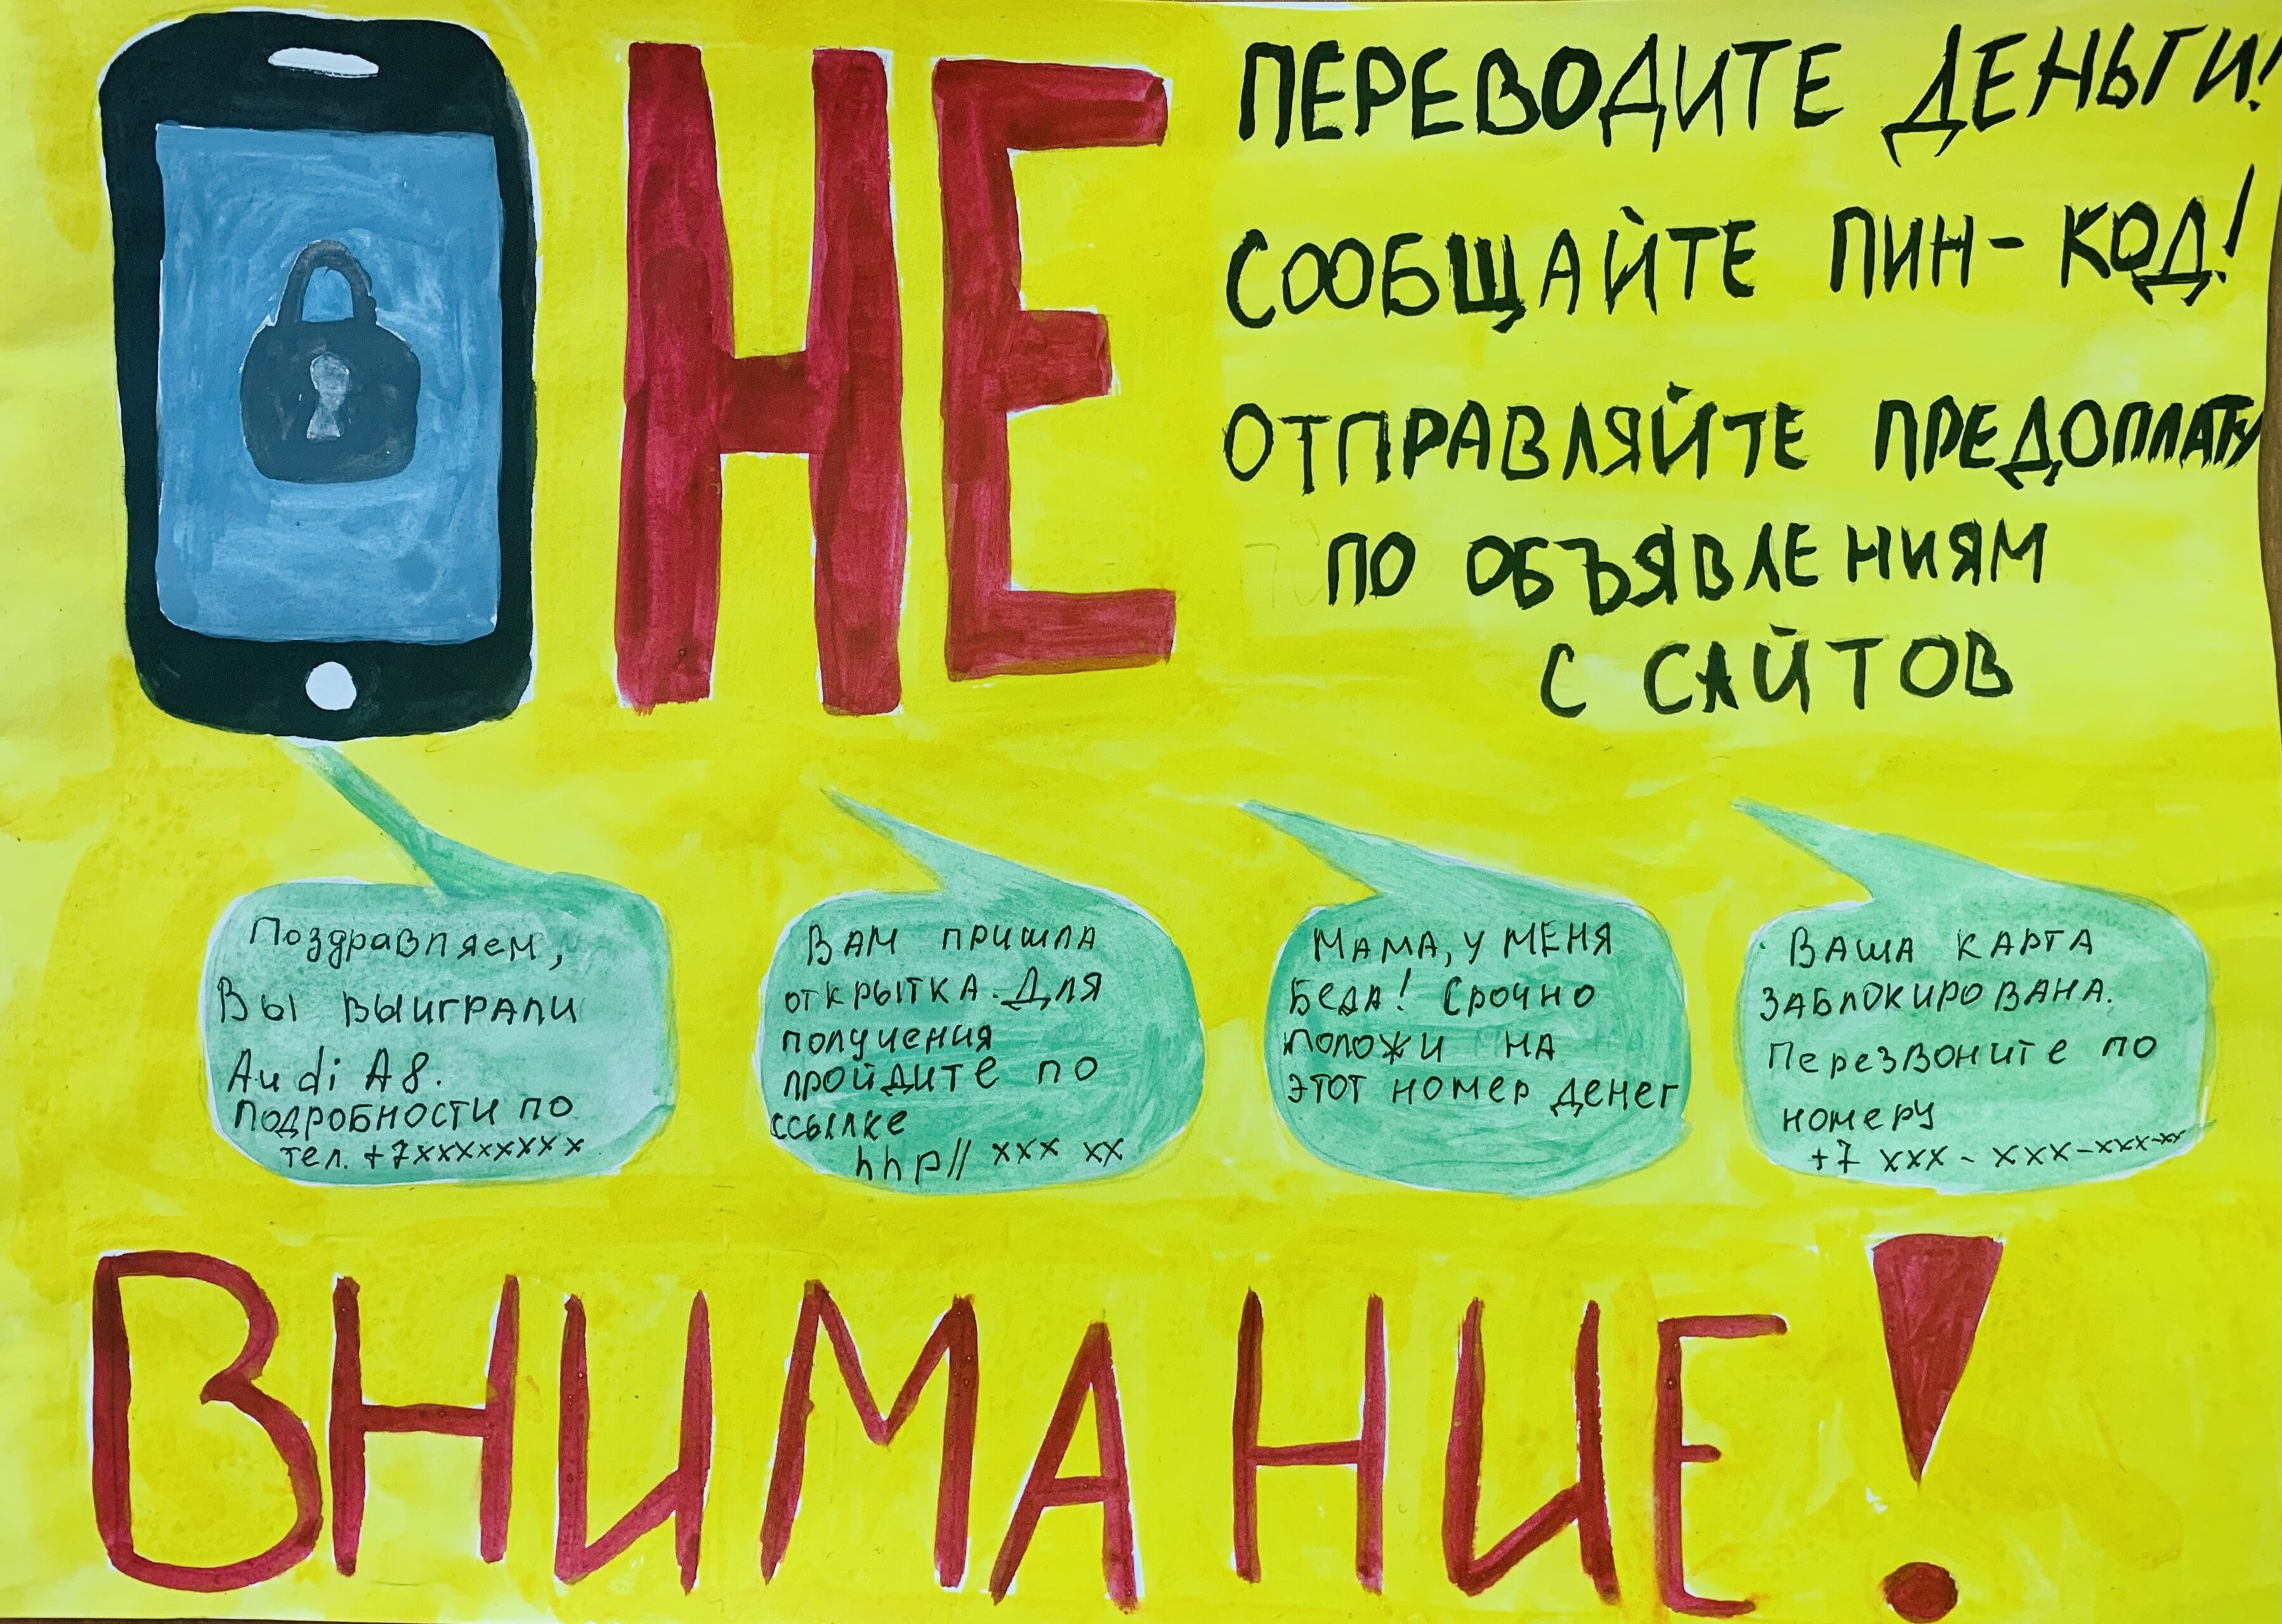 НЕ
ПЕРЕВОДИТЕ ДЕНЬГИ!
СООБЩАЙТЕ ПИН-КОД!
ОТПРАВЛЯЙТЕ ПРЕДОПЛАТУ
ПО ОБЪЯВЛЕНИЯМ
С САЙТОВ
Поздравляем,
Вы выиграли
Audi A8.
Подробности по
тел. +7xxxxxxxxx
Вам пришла
открытка. Для
получения
пройдите по
ссылке
hhp// xxx xx
Мама, у меня
беда! Срочно
положи на
этот номер денег
Ваша карта
заблокирована.
Перезвоните по
номеру
+7 xxx - xxx-xxx-xx
ВНИМАНИЕ!